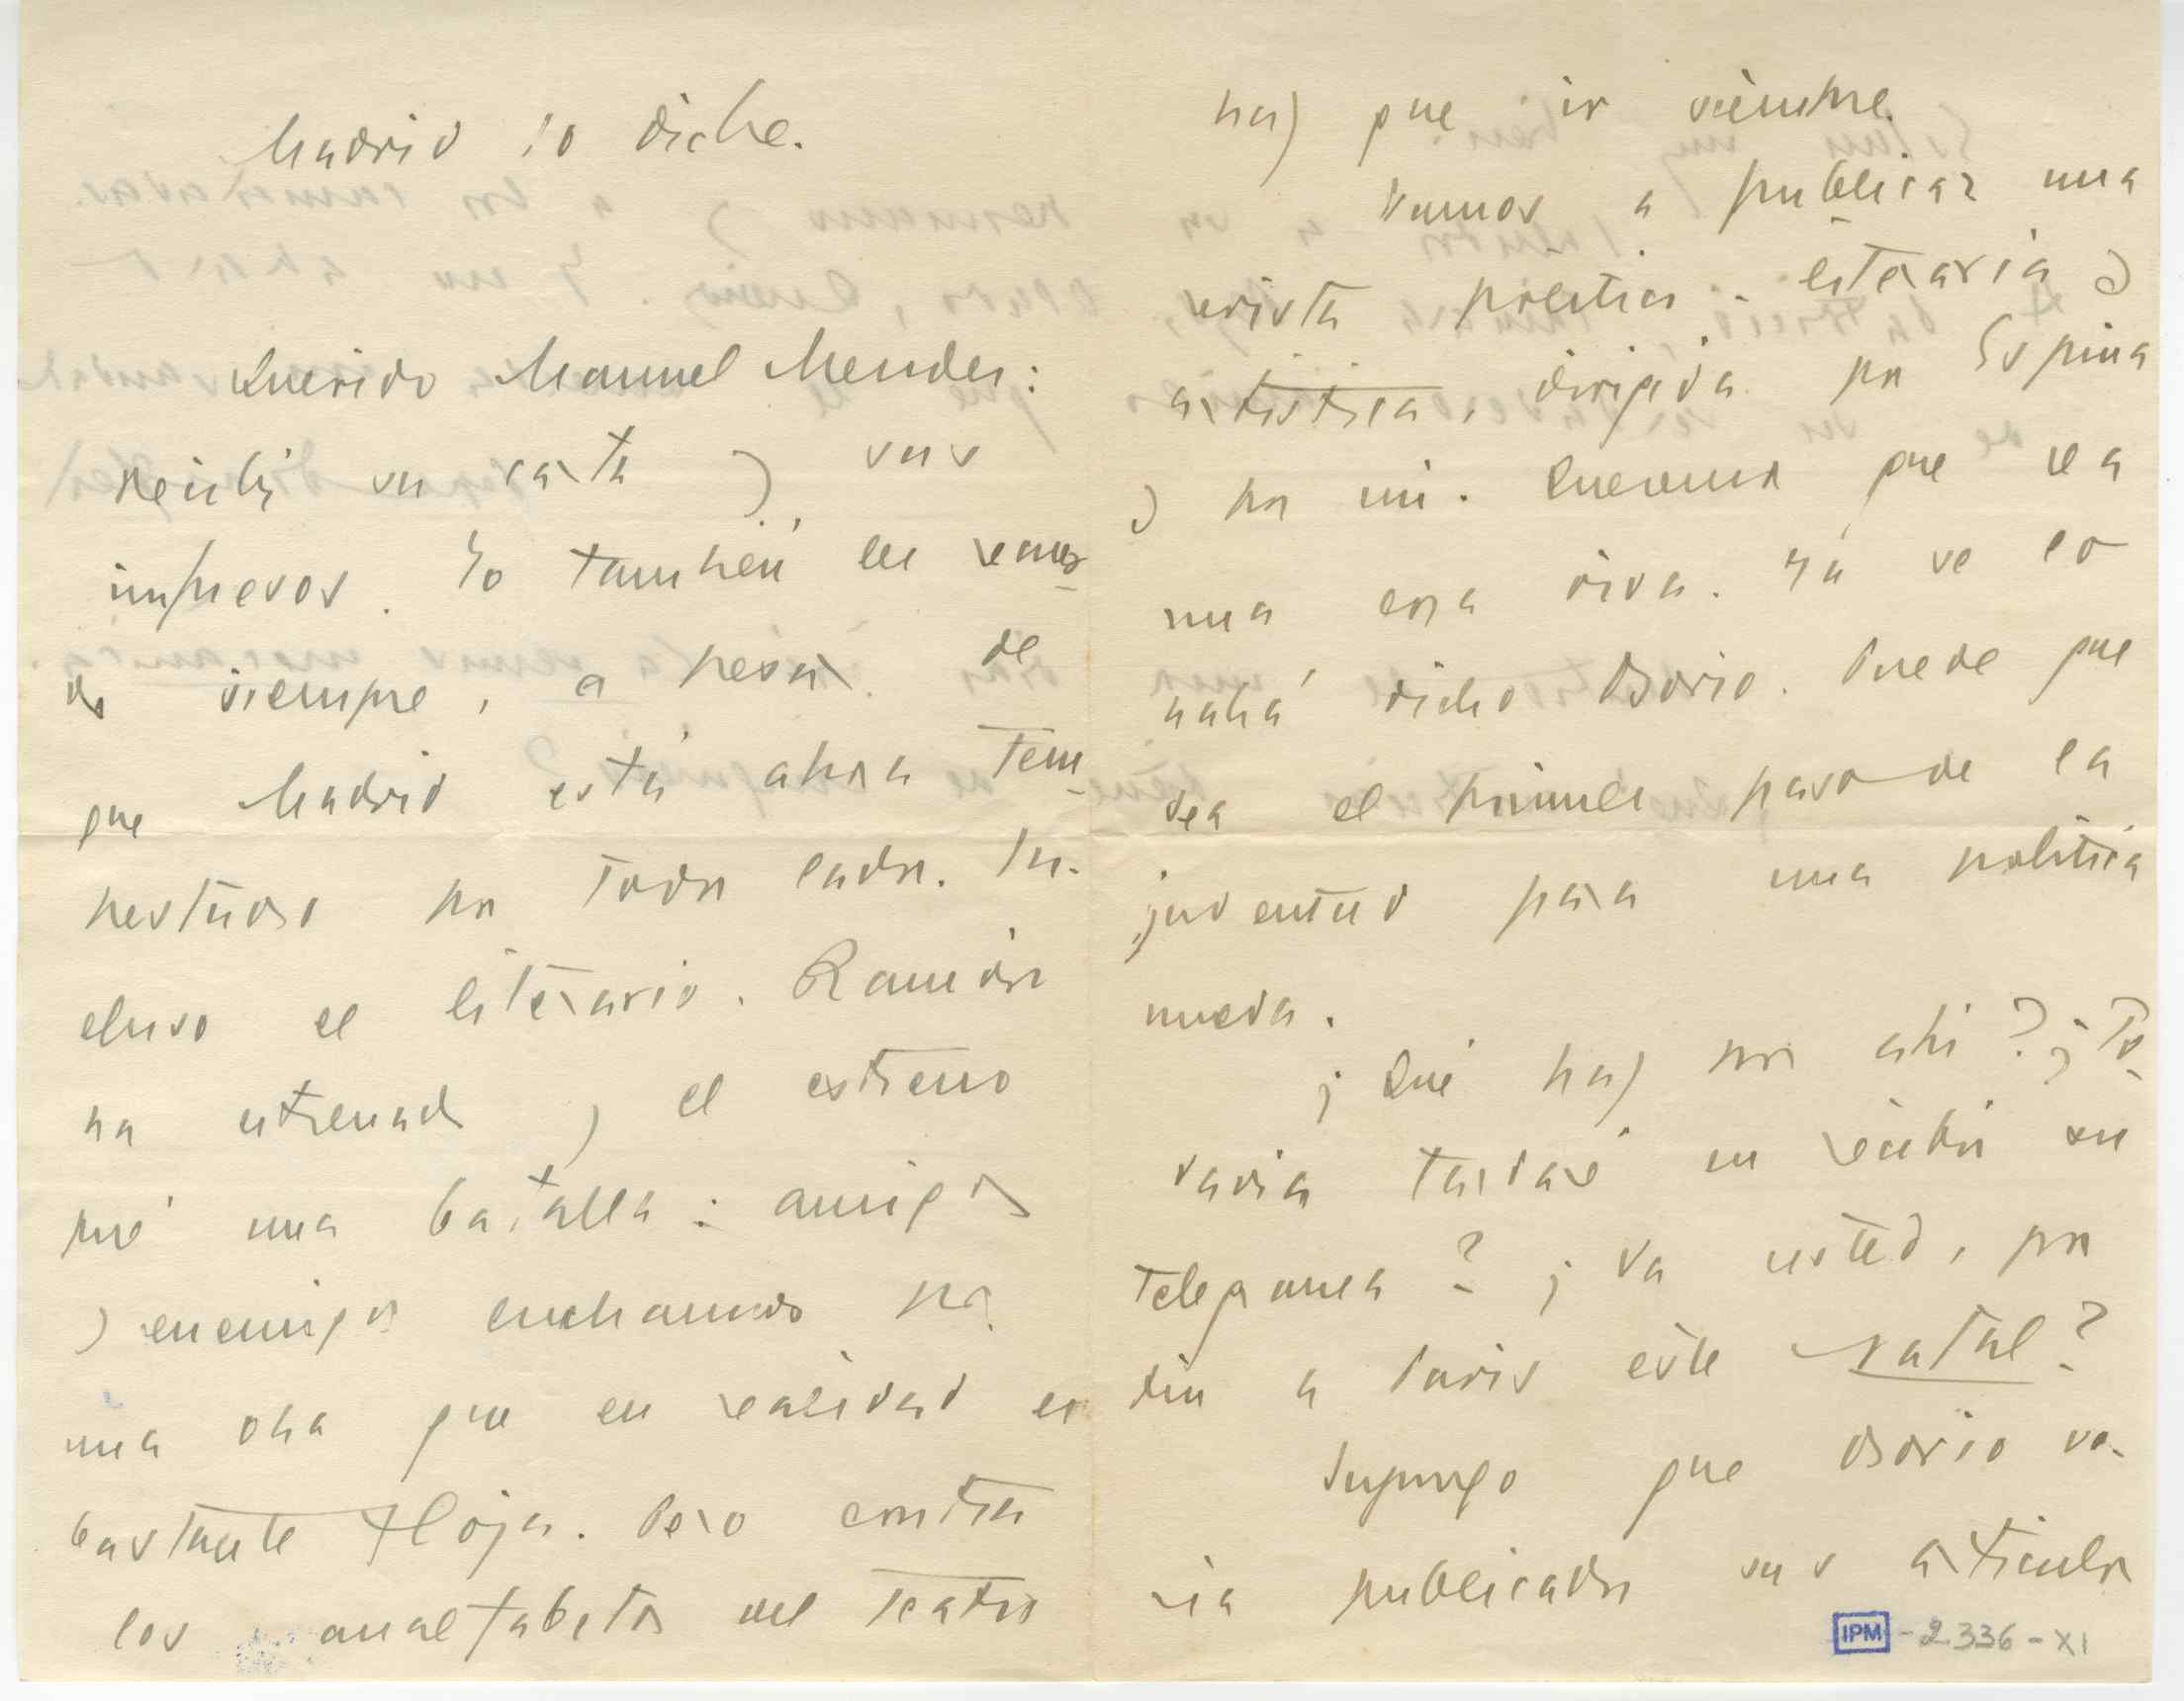 Madrid 10 dicbre.
Querido Manuel Mendes:
Recibí su carta y sus
impresos. Yo también les recuer-
do siempre, a pesar de
que Madrid está ahora tem-
pestuoso por todos lados. In-
cluso el literario. Ramón
ha estrenado y el estreno
fué una batalla: amigos
y enemigos luchamos por
una obra que en realidad es
bastante floja. Pero contra
los analfabetos del teatro
hay que ir siempre.
Vamos a publicar una
revista política-literaria y
artística, dirigida por Espina
y por mí. Queremos que sea
una cosa viva. Ya se lo
habrá dicho Osorio. Puede que
sea el primer paso de la
juventud para una política
nueva.
¿Qué hay por ahí? ¿To-
davía tardaré en recibir su
telegrama? ¿Va usted, por
fin a París este Natal?
Supongo que Osorio ve-
ría publicados sus artículos
IPM - 2336 - XI